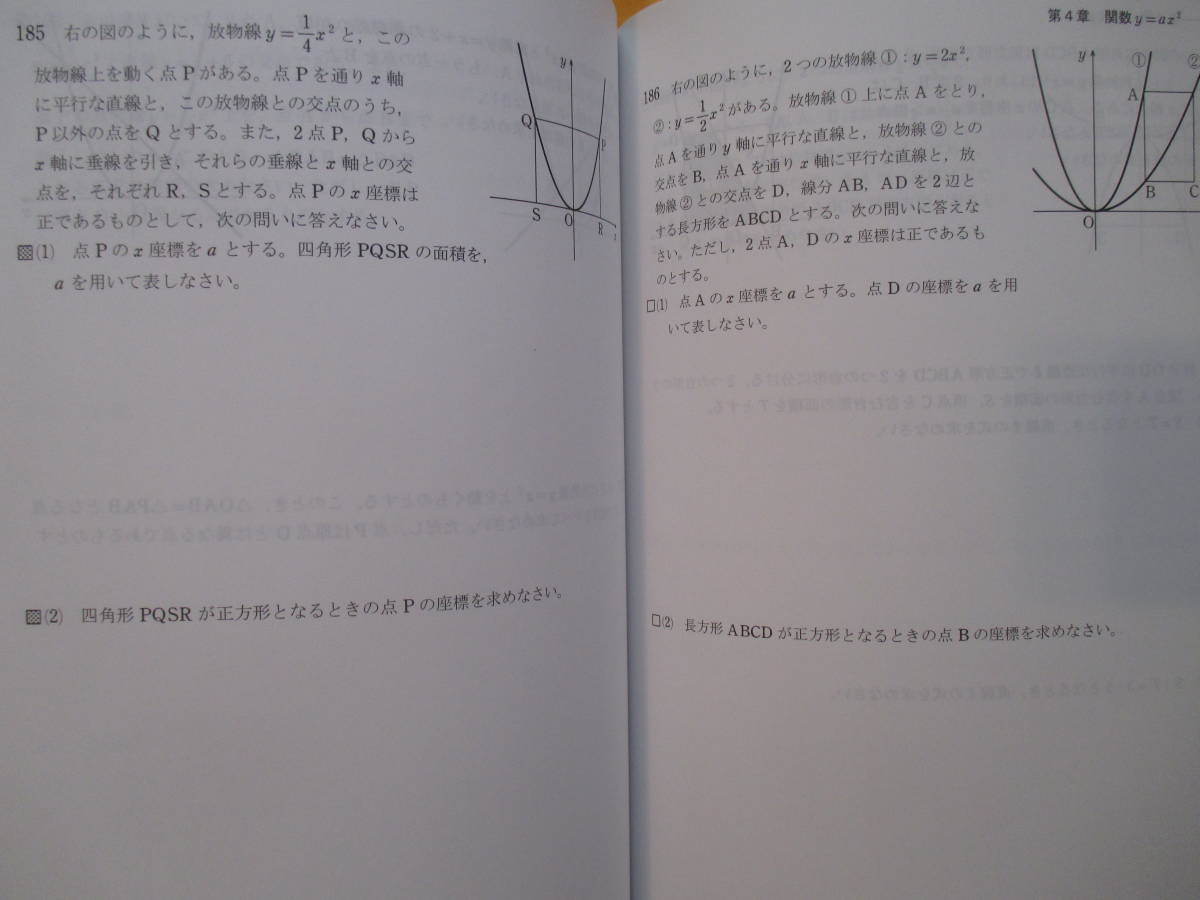 185 右の図のように，放物線 y=1/4x² と，この
放物線上を動く点Pがある。点Pを通りx軸
に平行な直線と，この放物線との交点のうち，
P以外の点をQとする。また，2点P，Qから
x軸に垂線を引き，それらの垂線とx軸との交
点を，それぞれR，Sとする。点Pのx座標は
正であるものとして，次の問いに答えなさい。
(1) 点Pのx座標をaとする。四角形PQSRの面積を，
aを用いて表しなさい。
y
Q
P
S
O
R
(2) 四角形PQSRが正方形となるときの点Pの座標を求めなさい。
第4章 関数 y=ax²
186 右の図のように，2つの放物線①：y=2x²，
②：y=1/2x² がある。放物線①上に点Aをとり，
点Aを通りy軸に平行な直線と，放物線②との
交点をB，点Aを通りx軸に平行な直線と，放
物線②との交点をD，線分AB，ADを2辺と
する長方形をABCDとする。次の問いに答えな
さい。ただし，2点A，Dのx座標は正であるも
のとする。
□(1) 点Aのx座標をaとする。点Dの座標をaを用
いて表しなさい。
y
①
②
A
B
C
O
□(2) 長方形ABCDが正方形となるときの点Bの座標を求めなさい。